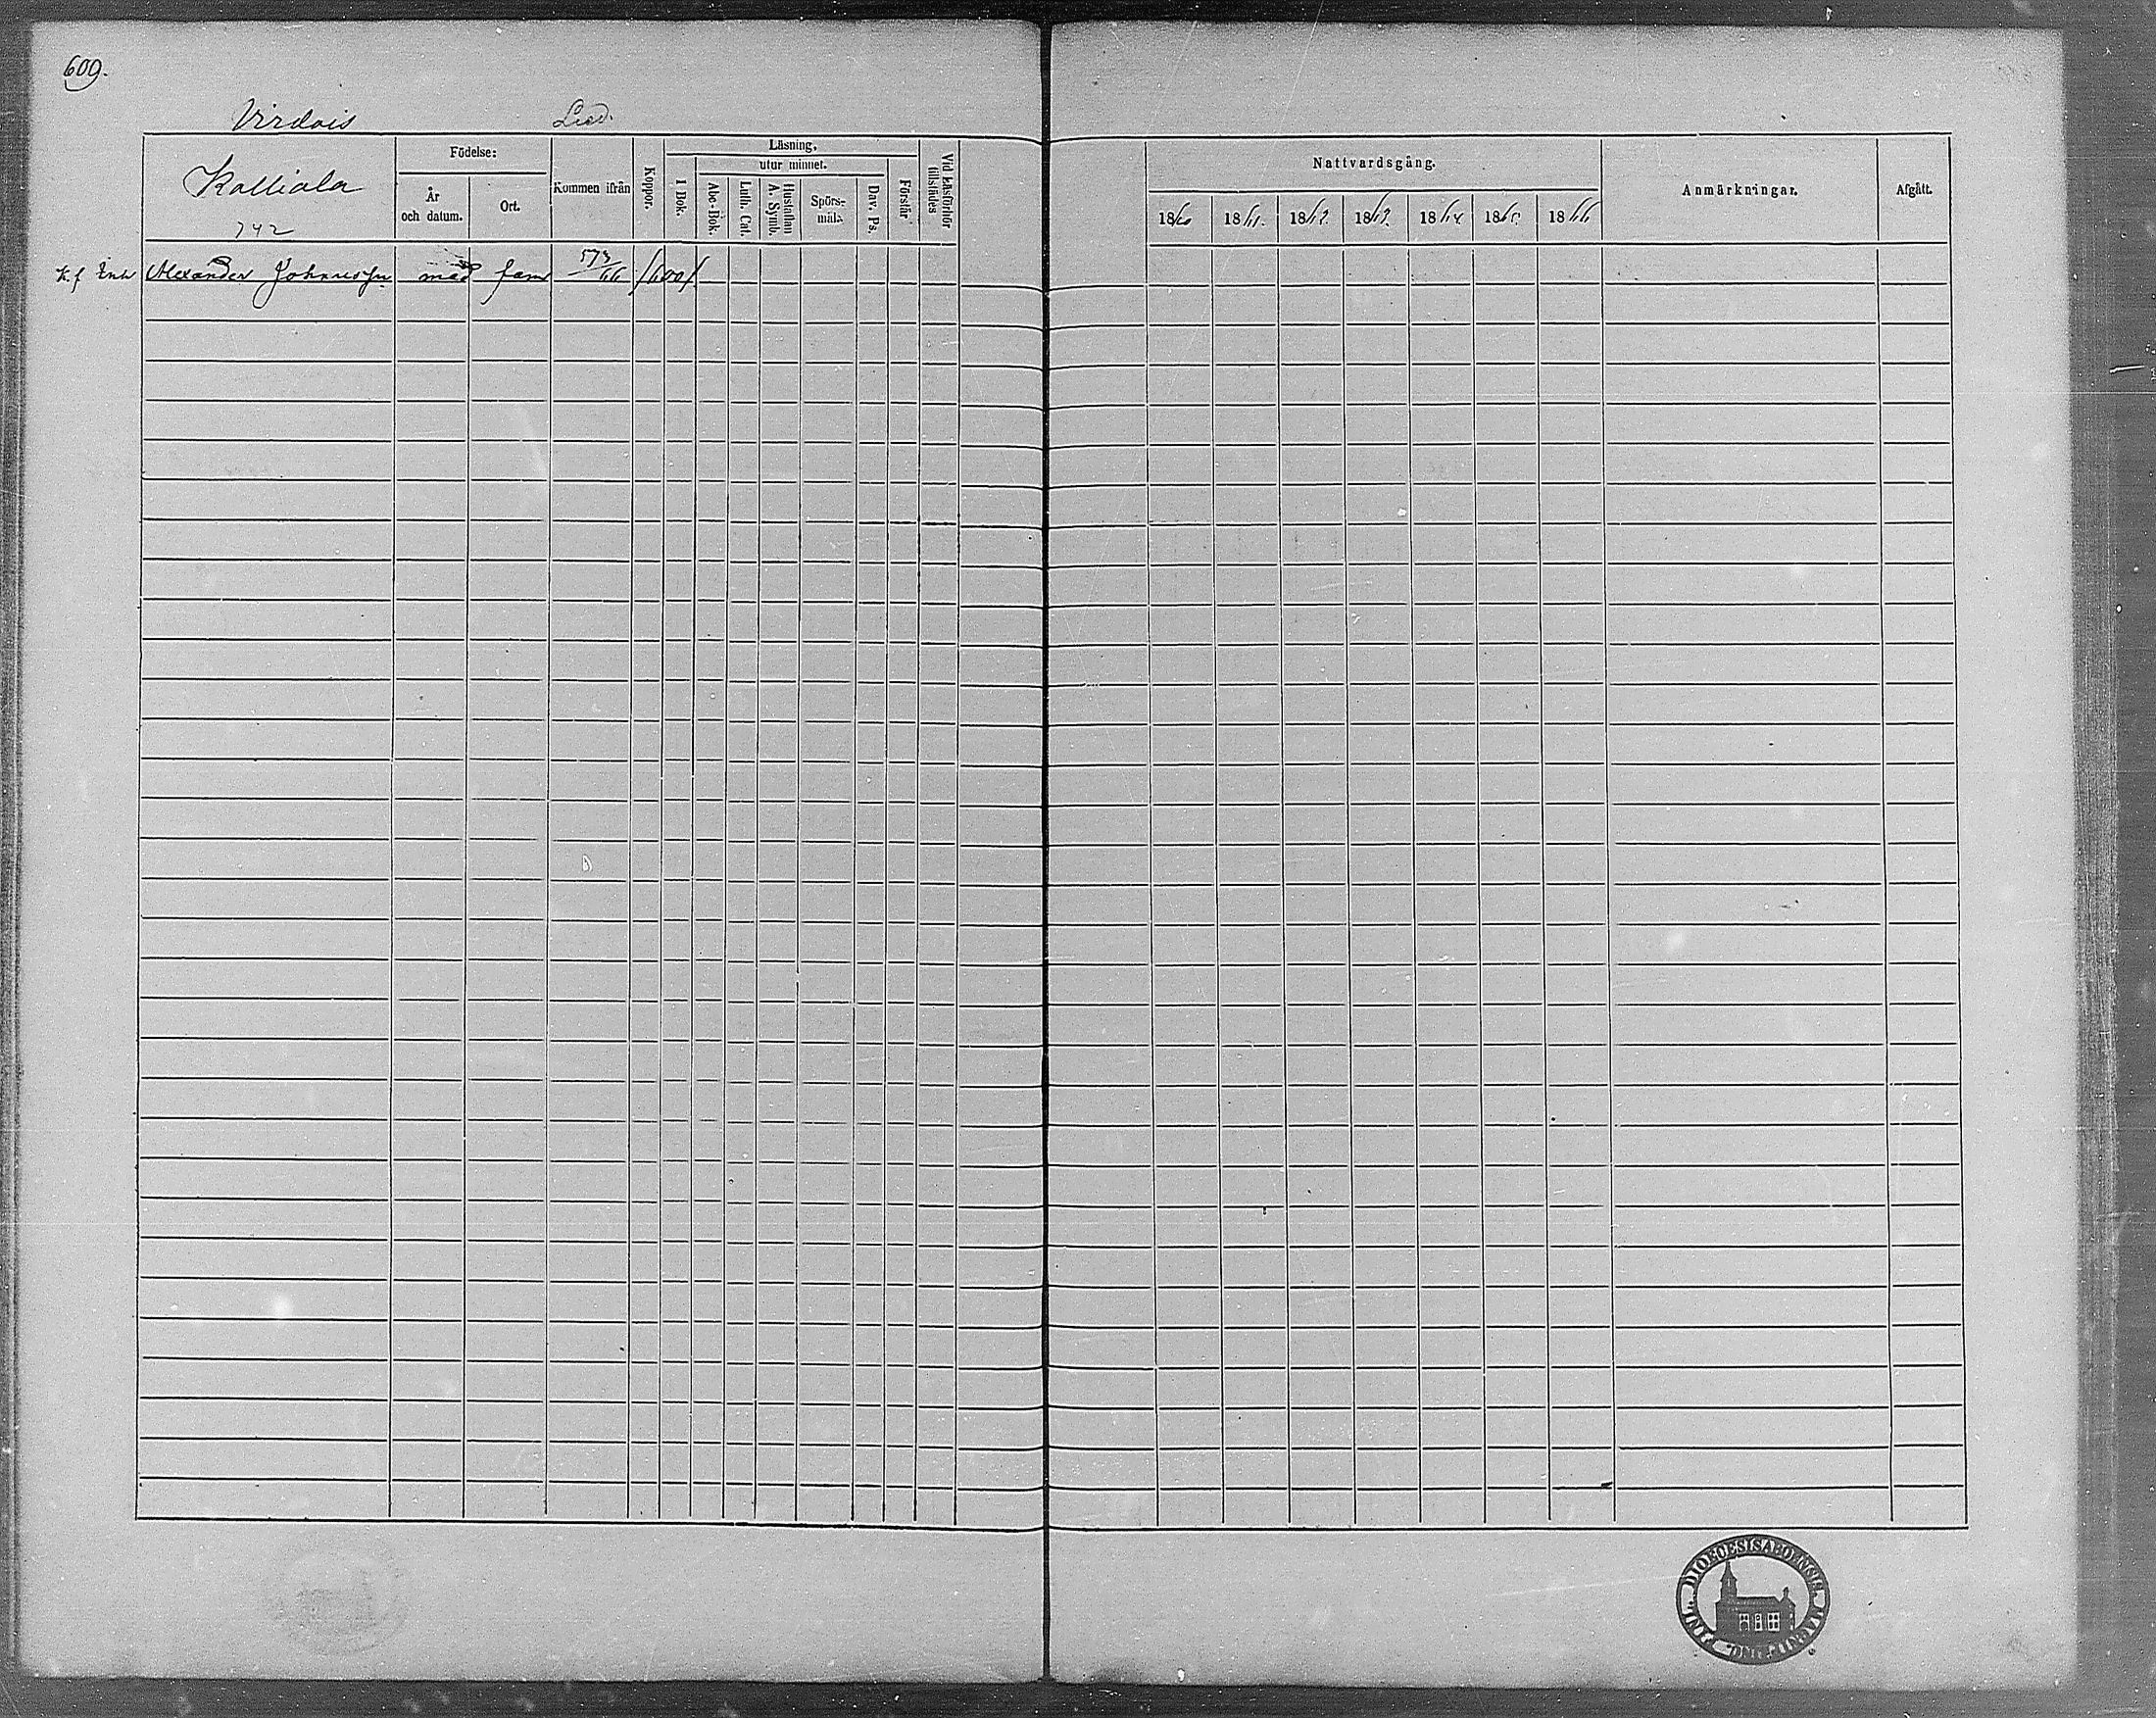 609.
Virdois
Kalliala
742
Födelse:
År
och datum.
Ort.
Kommen ifrån
Koppor.
Läsning.
utur minnet.
I Bok.
Abc-Bok.
Luth. Cat.
Hustaflan
A. Symb.
Spörs-
mål.
Dav. Ps.
Förstår
Vid Läsförhör
tillstädes
Nattvardsgång.
1860 1861. 1862. 1863. 1864. 1865. 1866
Anmärkningar.
Afgått.
K.f Enk Alexander Johansson med fam 573/66 /600/
SIG. DIOECESIS ABOENSIS MAGNI